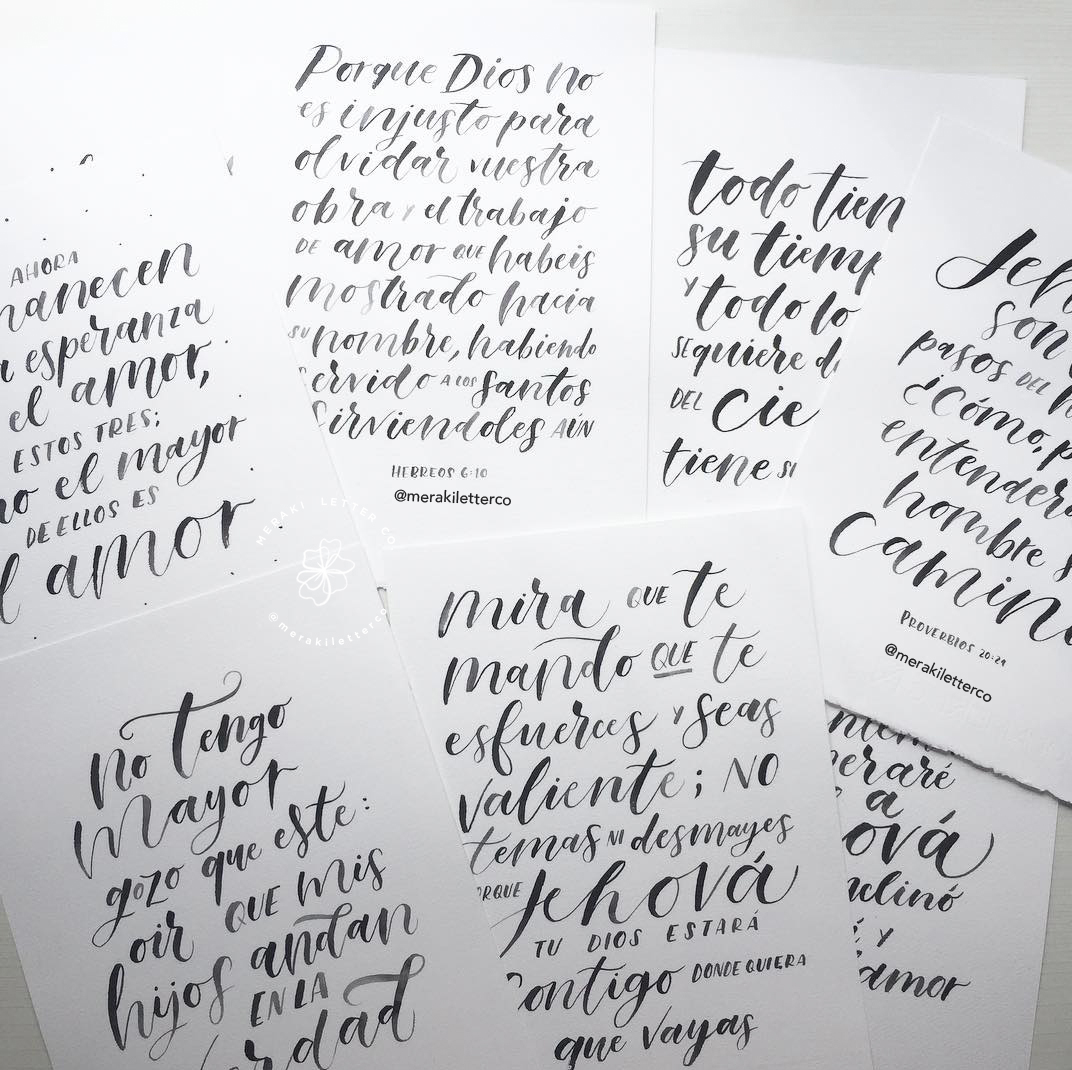 AHORA
esperanza
el amor,
ESTOS TRES;
el mayor
DE ELLOS ES
amor
Porque Dios no
es injusto para
olvidar vuestra
obra y el trabajo
DE amor QUE habeis
mostrado hacia
su nombre, habiendo
servido A LOS Santos
Sirviendoles AÚN
HEBREOS 6:10
@merakiletterco
todo
su
Y todo lo
SE quiere
DEL
tiene
son
pasos DEL
¿Cómo,
hombre
PROVERBIOS 20:24
@merakiletterco
MERAKI LETTER CO
@merakiletterco
no tengo
Mayor
gozo que este:
oir QUE mis
hijos andan
EN LA
mira QUE te
mando QUE te
esfuerces y seas
valiente; NO
temas NI desmayes
Jehová
TU DIOS ESTARÁ
contigo DONDE QUIERA
que vayas
a
Y
amor